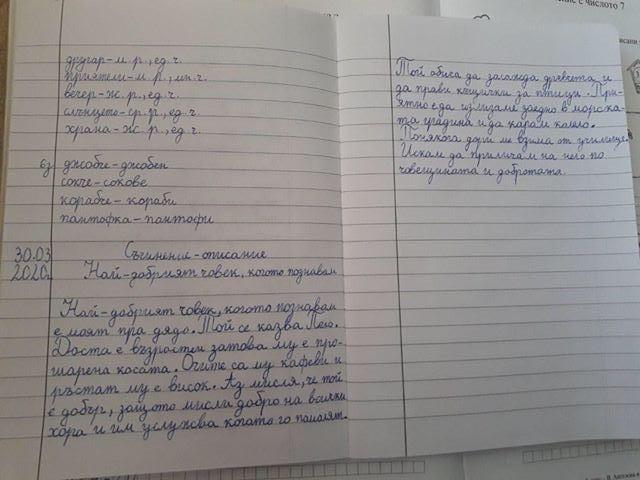 другар-м.р., ед.ч.
приятели-м.р., мн.ч.
вечер-ж.р., ед.ч.
слънцето-ср.р., ед.ч.
храна-ж.р., ед.ч.
джобче-джобен
сокче-сокове
корабче-кораби
пантофка-пантофи
30.03 Съчинение-описание
2020г. Най-добрият човек, когото познавам
Най-добрият човек, когото познавам
е моят пра дядо. Той се казва Пею.
Доста е възрастен затова му е про-
шарена косата. Очите са му кафеви и
ръстат му е висок. Аз мисля, че той
е добър, защото мисли добро на всички
хора и им услужва когато го помолят.
Той обича да засажда дръвчета и
да прави къщички за птици. При-
ятно е да излизаме заедно в морска-
та градина и да карам колело.
Понякога дори ме взима от училище.
Искам да приличам на него по
човещината и добротата.
ие с числото 7